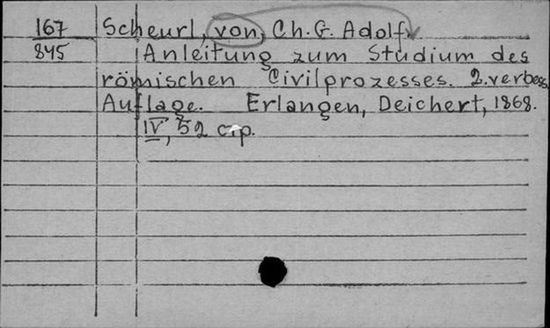 167 Scheurl, von, Ch. G. Adolf.
845 Anleitung zum Studium des
römischen Civilprozesses. 2. verbes.
Auflage. Erlangen, Deichert, 1868.
IV, 52 стр.